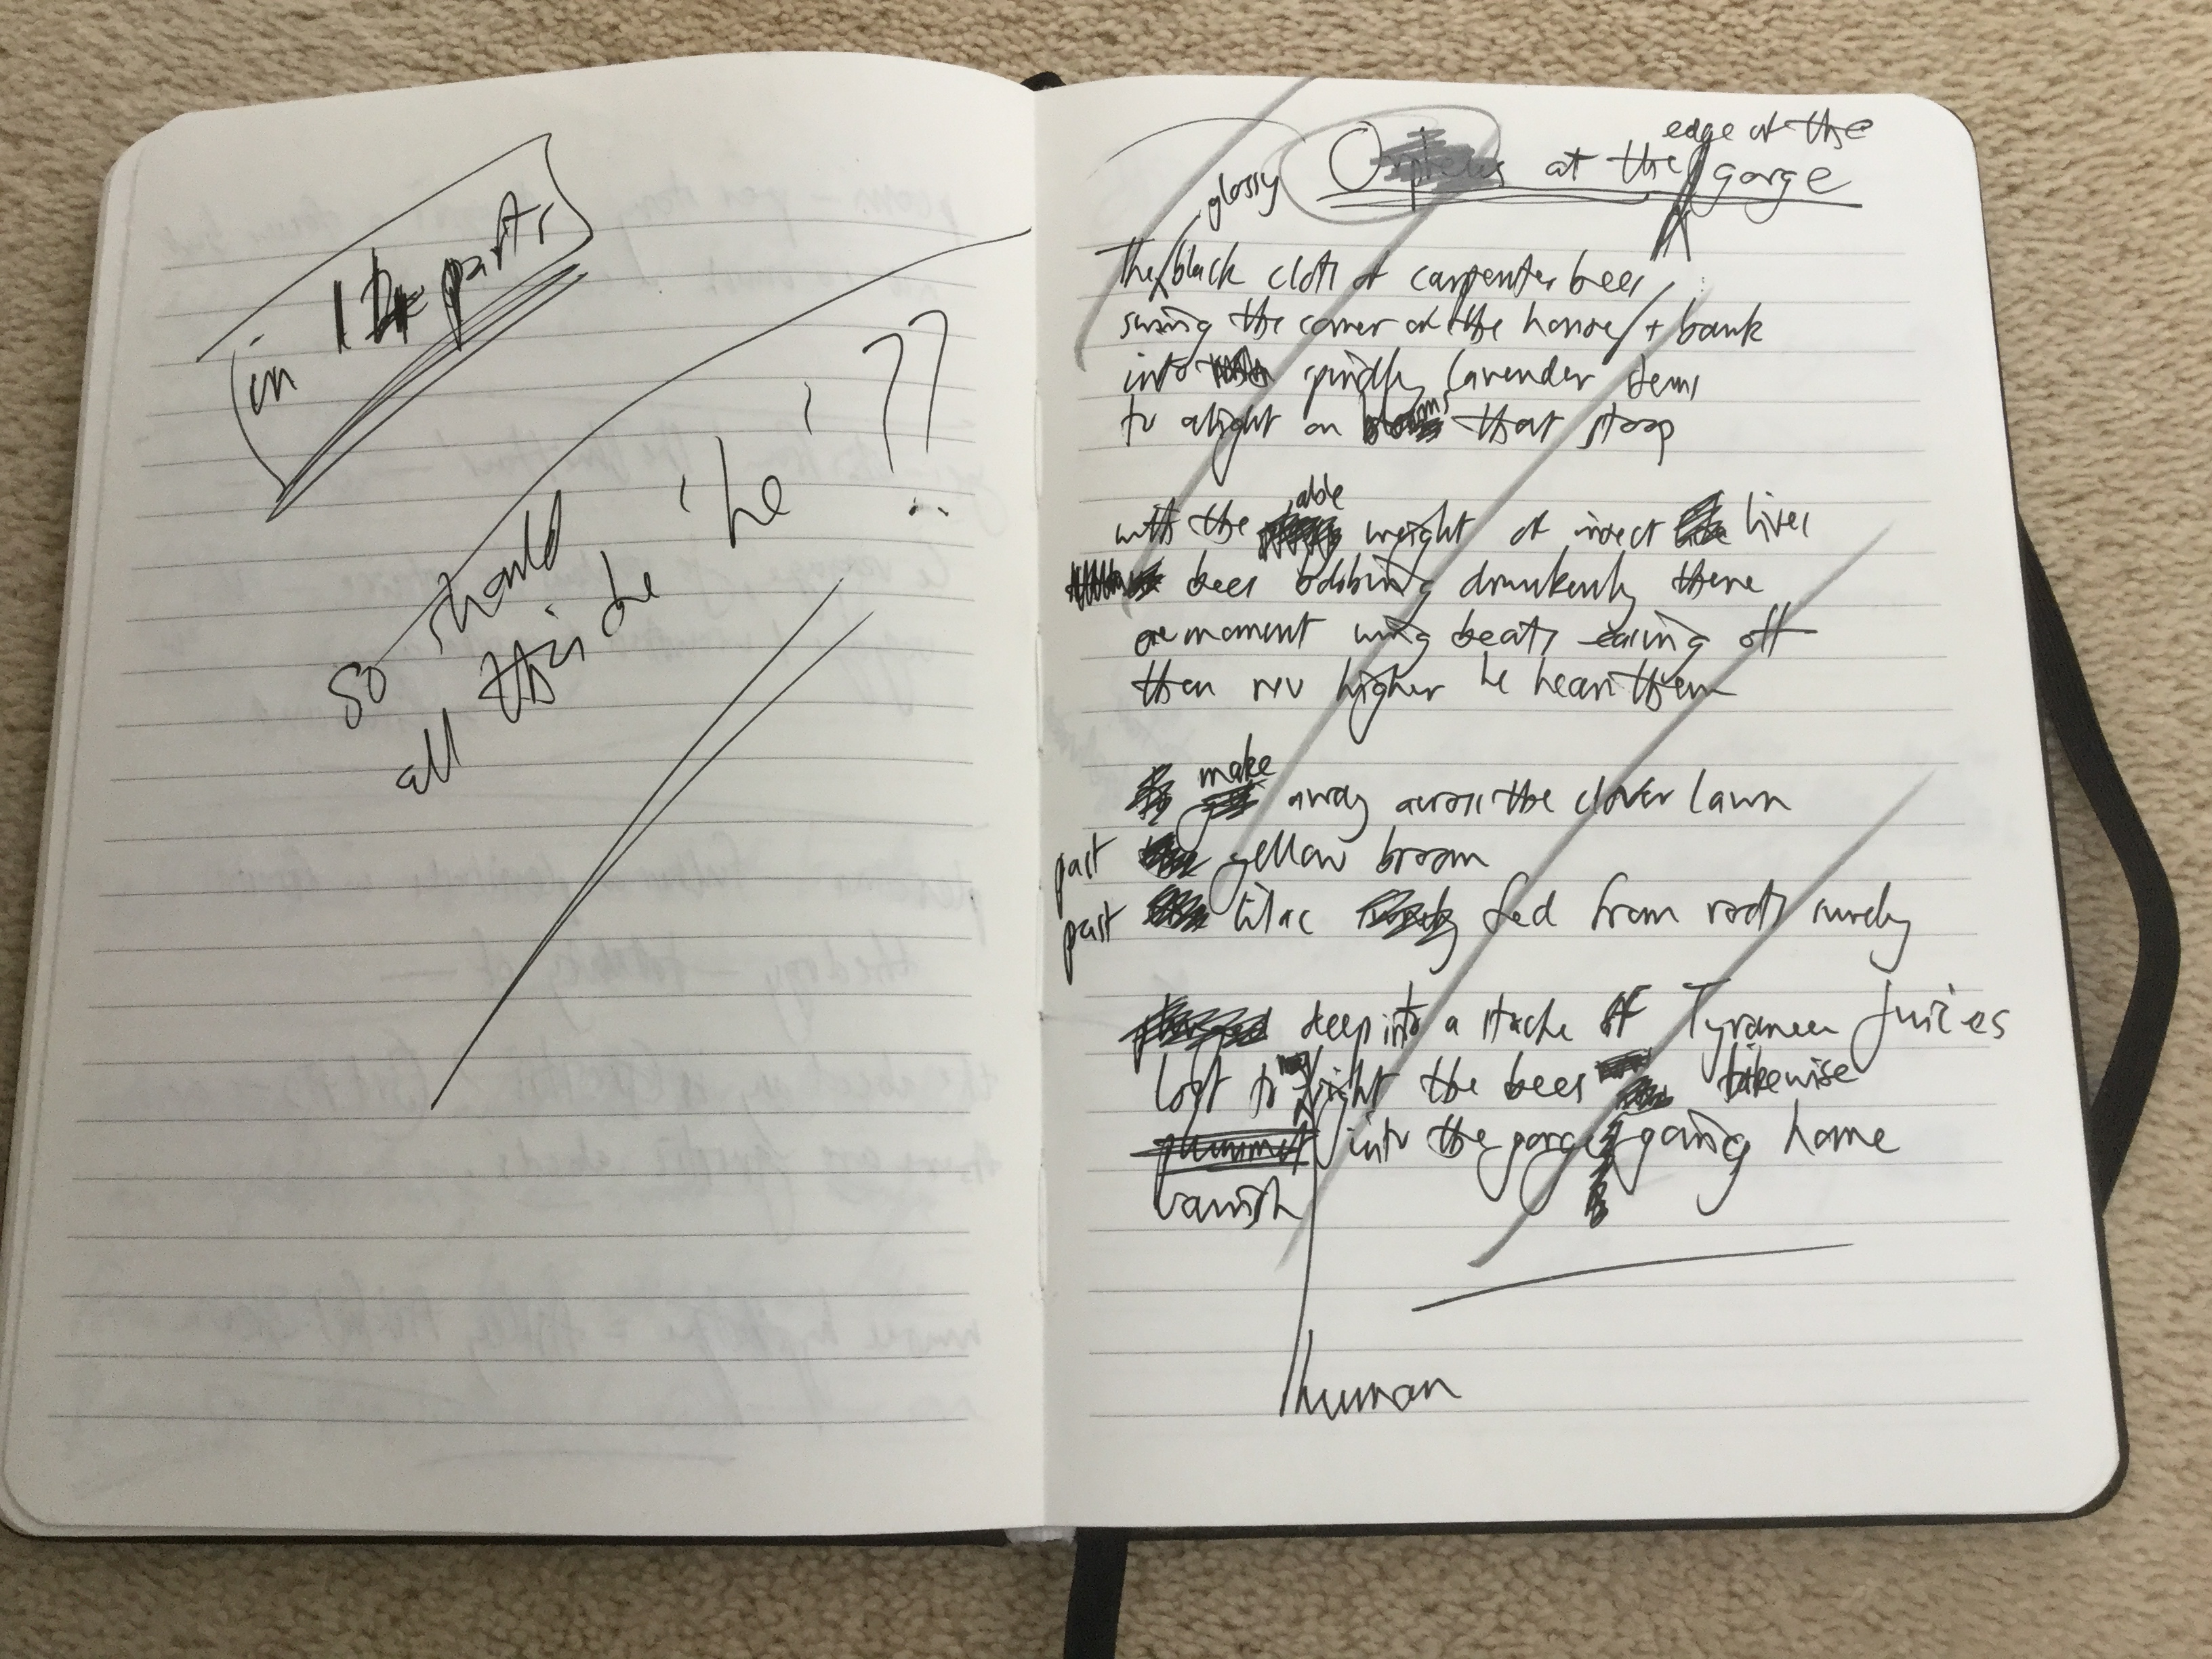 (in 12 parts)
so should
all this be 'he' ??
edge of the
Orpheus at the gorge
glossy
The black clots of carpenter bees
swing the corner of the house + bank
into spindly lavender stems
to alight on blooms that stoop
able
with the weight of insect lives
bees bobbing drunkenly there
one moment wing beats easing off
then rev higher he hears them
make
away across the clover lawn
past yellow broom
past lilac fed from roots surely
plunged deep into a stache of Tyranean juices
lost to sight the bees likewise
plummet into the gorge going home
vanish
human